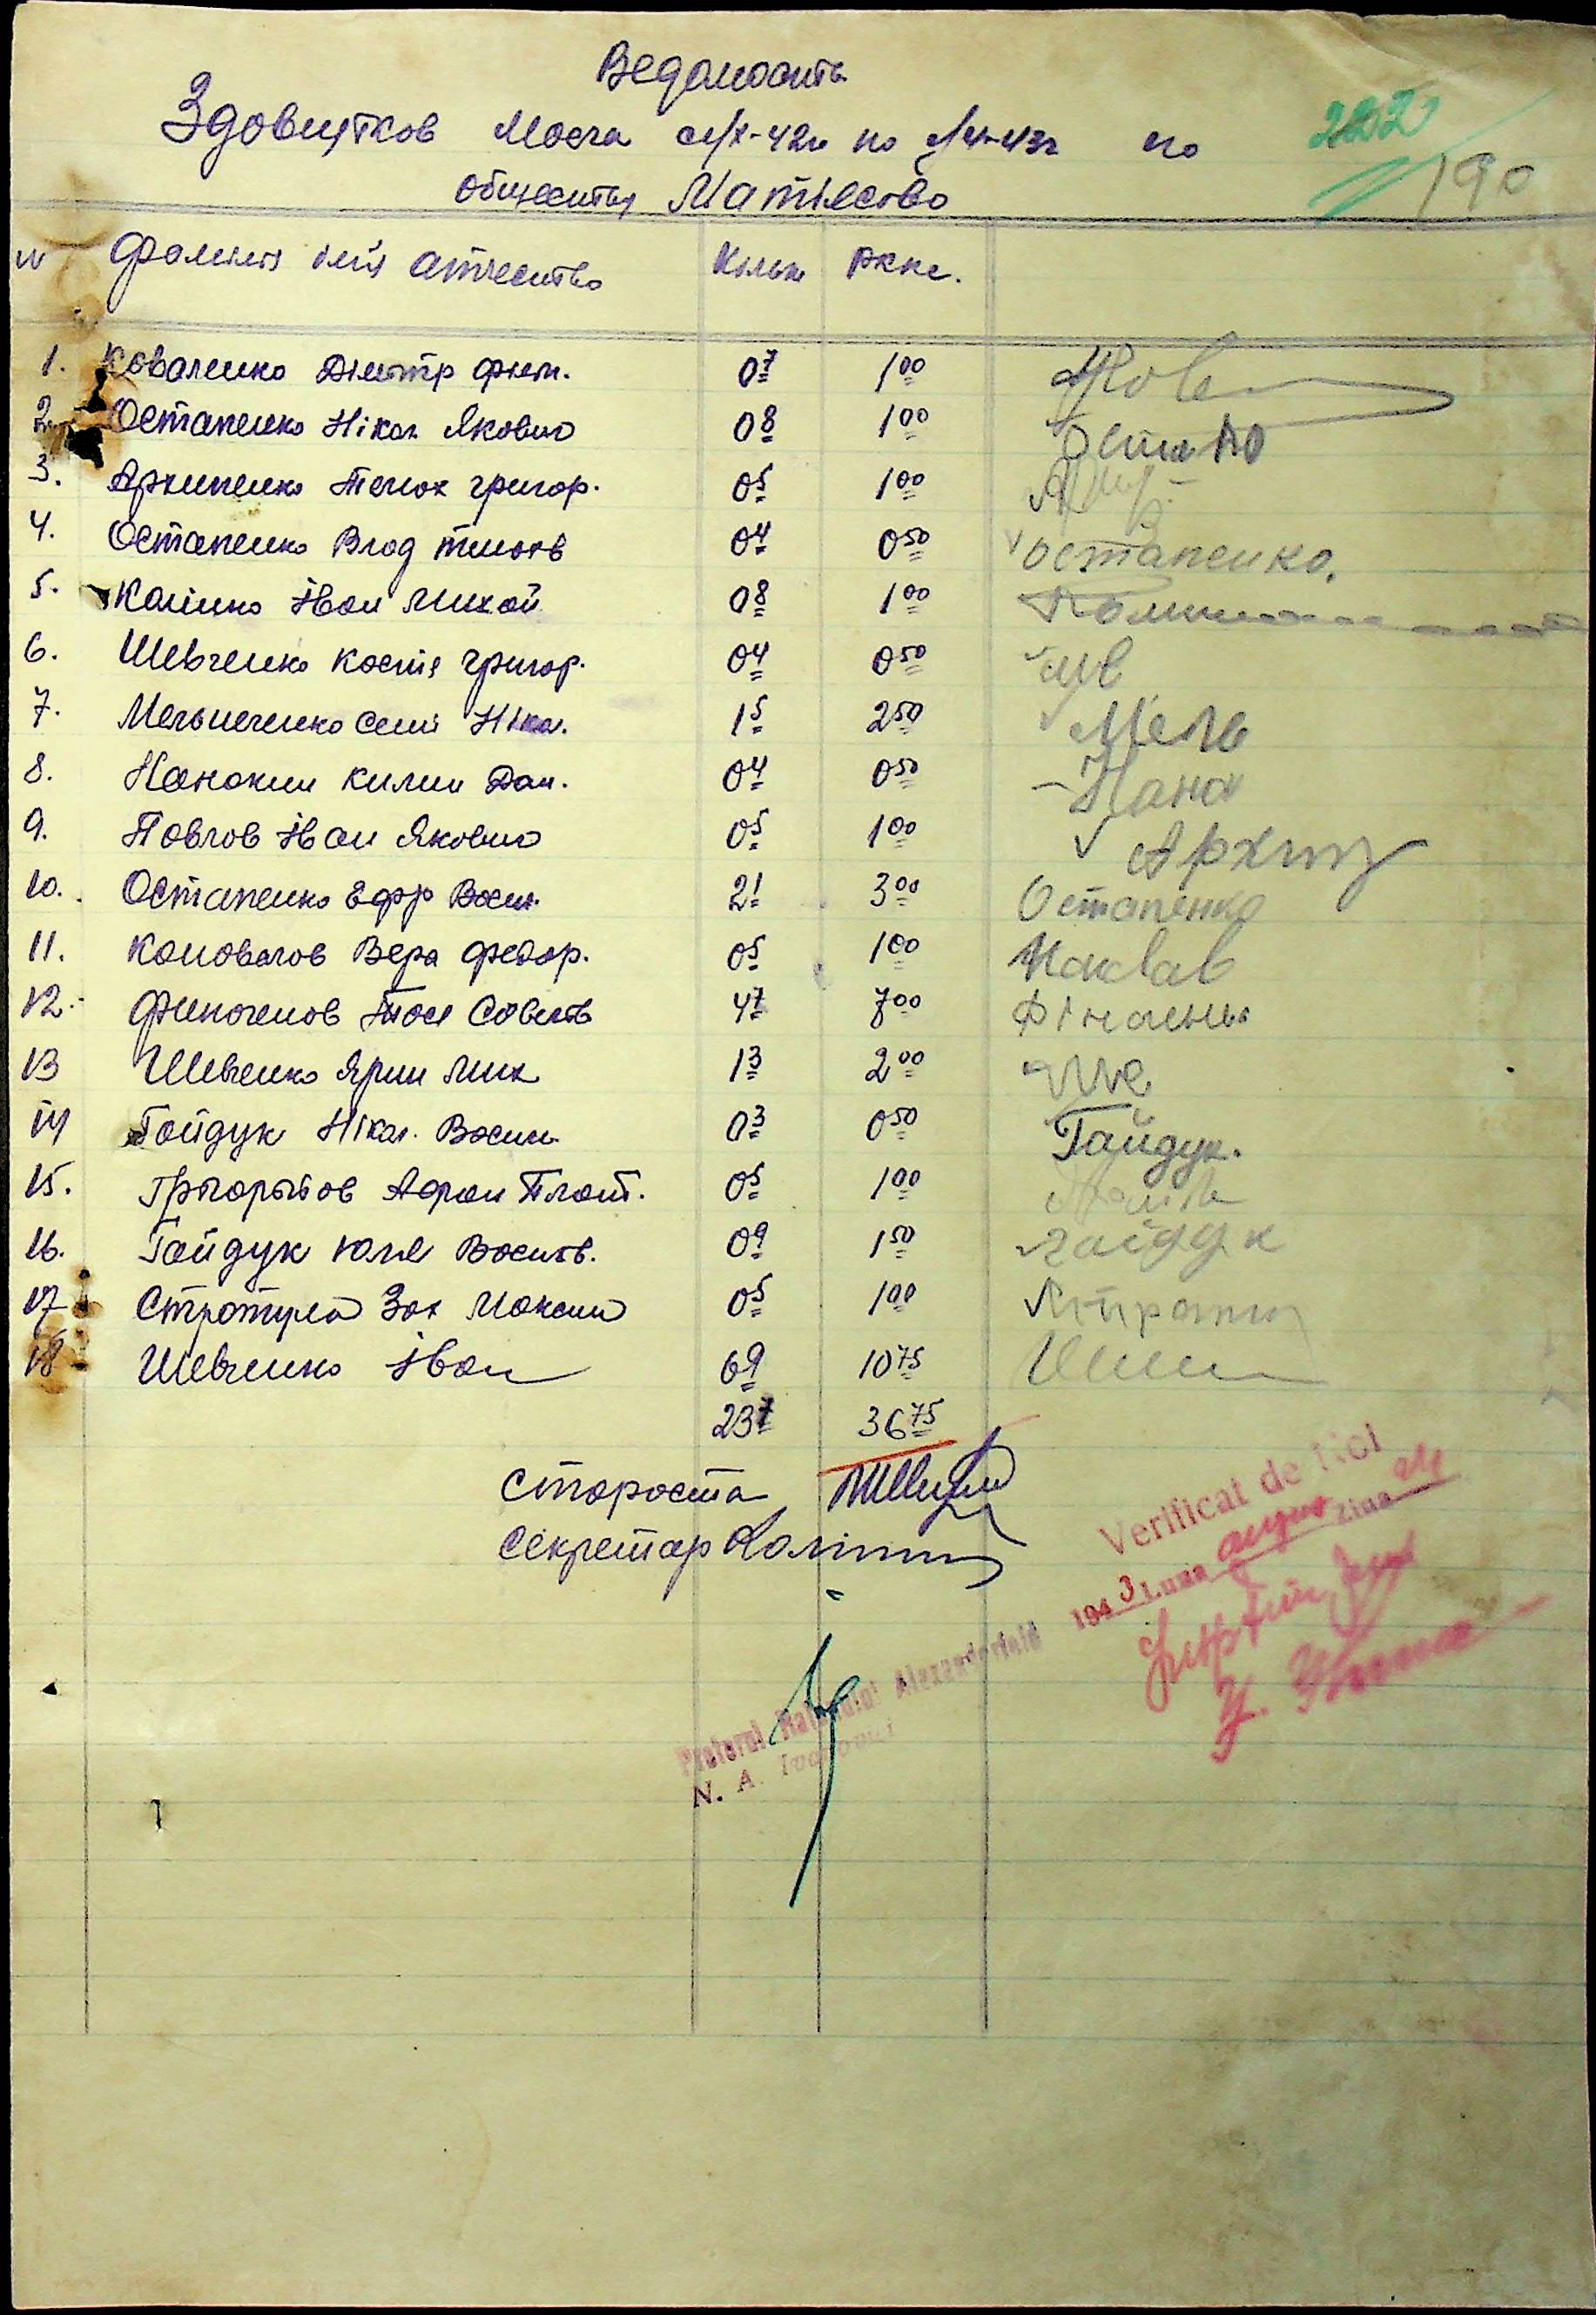 Ведомость
Здовчутков Мосга с 1/X-42г по 1/4-43г по
202
190
общества Матьясово
N Фамилия имя атчество Кольк РККС.
1. Коваленко Дімітр Філ. 07 1 00 Кове
2. Остапенко Нікол Якович 08 1 00 Остап
3. Архипенко Тимох Григор. 05 1 00
4. Остапенко Влод Тимохв 04 0 50 Остапенко.
5. Калінко Іван Михай 08 1 00
6. Шевченко Костя Григор. 04 0 50 Шев
7. Мельниченко Семі Нікол. 15 2 50 Мель
8. Нанакин Килин Дан. 04 0 50 Нана
9. Павлов Іван Якович 05 1 00 Архип
10. Остапенко Ефр Васил. 21 3 00 Остапенко
11. Коновалов Вера Федор. 05 1 00
12. Финогенов Савелв 47 7 00
13 Шевченко Ярин Мих 13 2 00 Шве
14 Гайдук Нікол. Васил. 03 0 50 Гайдук.
15. Грыгорьтов Афрон Плат. 05 1 00
16. Гайдук Юля Васильв. 09 1 50 Гайдук
17 Стратула Зах Максим 05 1 00 Страту
18 Шевченко Іван 69 10 75
237 36 75
Староста
Секретар Калінко
Verificat de Noi
1943 Luna august Ziua 24
Pretorul Raionului Alexanderfeld
N. A. Ivanovici